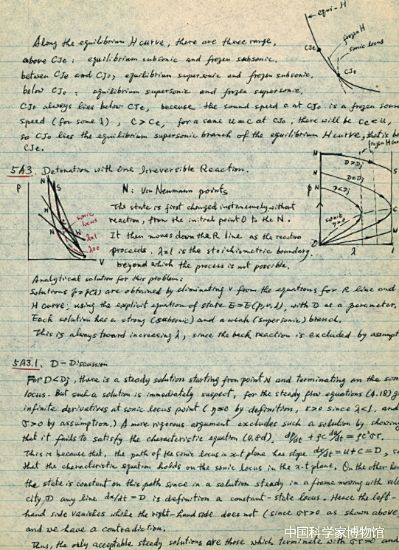 equi-H
Along the equilibrium H curve, there are three range,
above CJe: equilibrium subsonic and frozen subsonic,
between CJe and CJo, equilibrium supersonic and frozen subsonic,
below CJo: equilibrium supersonic and frozen supersonic.
CJo always lies below CJe, because the sound speed c at CJo is a frozen soun
speed (for some λ), C > Ce, for a same u=c at CJo, there will be Ce<u,
so CJo lies the equilibrium supersonic branch of the equilibrium H curve, that is be
CJe.
frozen H
sonic locus
CJe
CJo
5A3. Detonation with One Irreversible Reaction.
N: Von Neumann points
The state is first changed instantaneously without
reaction, from the initial point O to the N.
It then moves down the R line as the reaction
proceeds, λ=1 is the stoichiometric boundary,
beyond which the process is not possible.
P
N
S
λ=1
λ=0
V
P
N
D>Dj
D<Dj
S
O
λ
1
Analytical solution for this problem:
Solutions p=p(λ) are obtained by eliminating v from the equations for R line and
H curve, using the explicit equation of state E=E(p,v,λ), with D as a parameter.
Each solution has a strong (subsonic) and a weak (supersonic) branch.
This is always toward increasing λ, since the back reaction is excluded by assumpt
5A3.1. D-Discussion
For D<Dj, there is a steady solution starting from point N and terminating on the son
locus. But such a solution is immediately suspect, for the steady flow equations (4.18) g
infinite derivatives at sonic locus point (η=0 by definition, r>0 since λ<1, and
σ>0 by assumption). A more rigorous argument excludes such a solution by showing
that it fails to satisfy the characteristic equation
This is because that, the path of the sonic locus in x-t plane has slope dx/dt = u+c = D, so
that the characteristic equation holds on the sonic locus in the x-t plane. On the other han
the state is constant on this path since in a solution steady in a frame moving with velo
city D any line dx/dt = D is definition a constant-state locus. Hence the left-
hand side vanishes while the right-hand side does not (since σr>0 as shown above
and we have a contradiction.
Thus, the only acceptable steady solutions are those which terminate with and
中国科学家博物馆